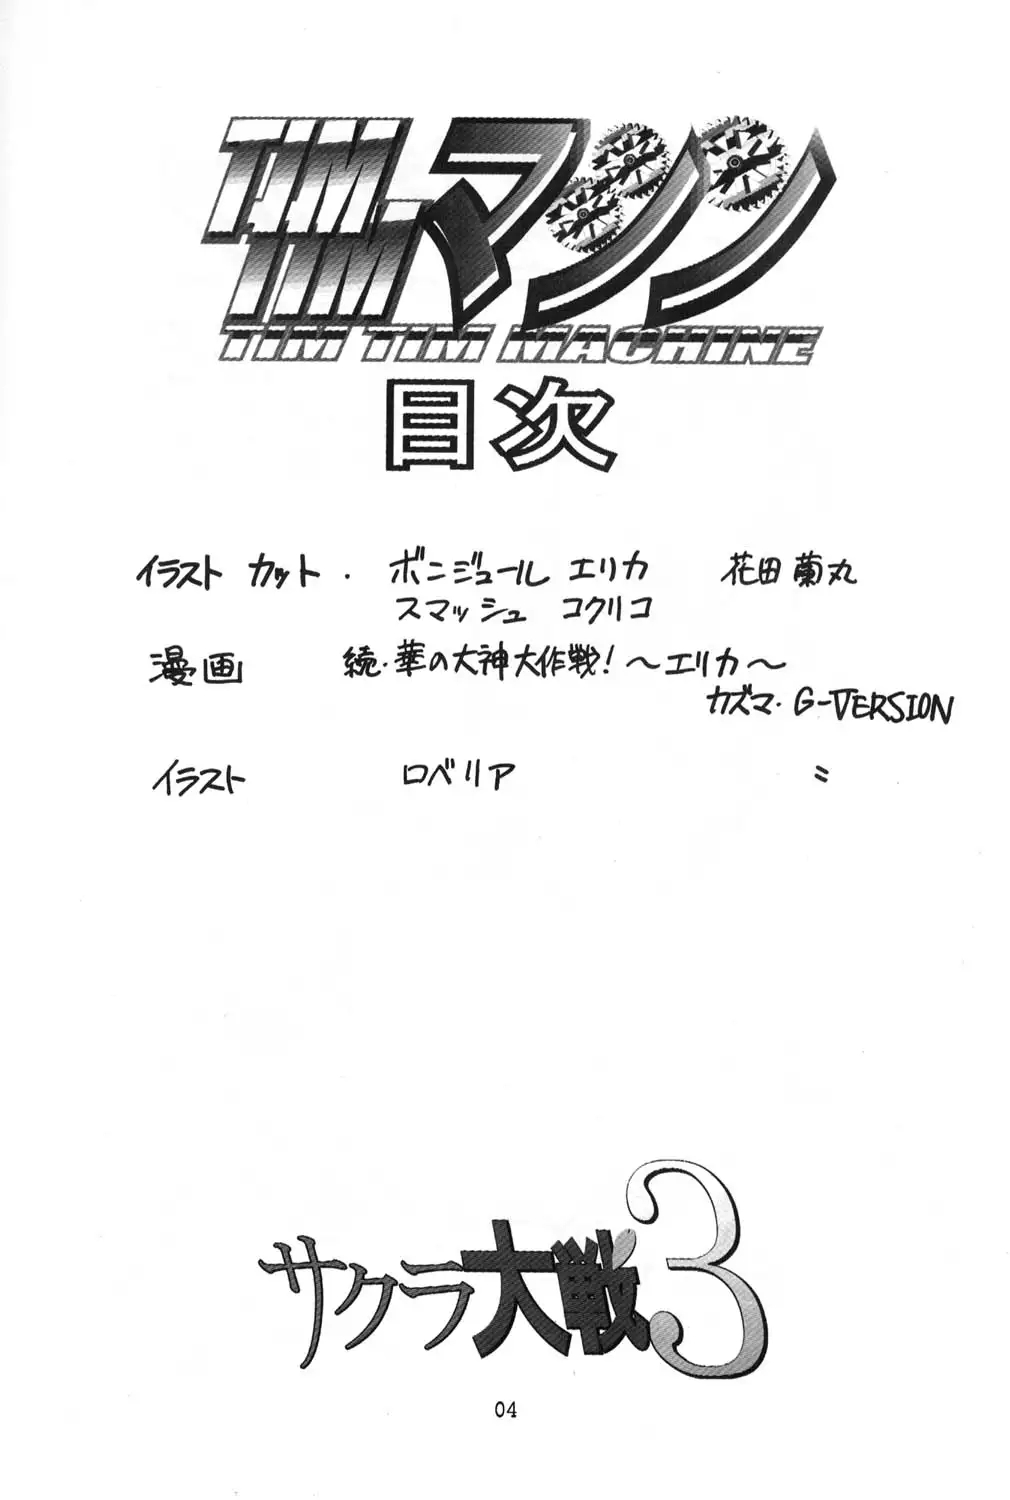 TIM TIM マシン
TIM TIM MACHINE
目次
イラスト カット・ ボンジュール エリカ 花田 蘭丸
スマッシュ コクリコ
漫画 続・華の大神大作戦!～エリカ～
カズマ・G-VERSION
イラスト ロベリア 〃
サクラ大戦3
04